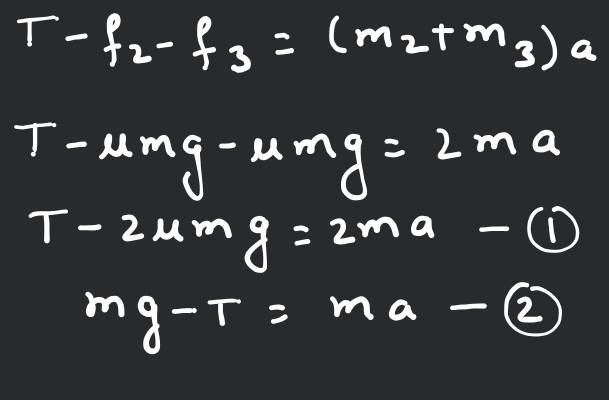 T - f₂ - f₃ = (m₂ + m₃) a
T - μmg - μmg = 2ma
T - 2μmg = 2ma - ①
mg - T = ma - ②